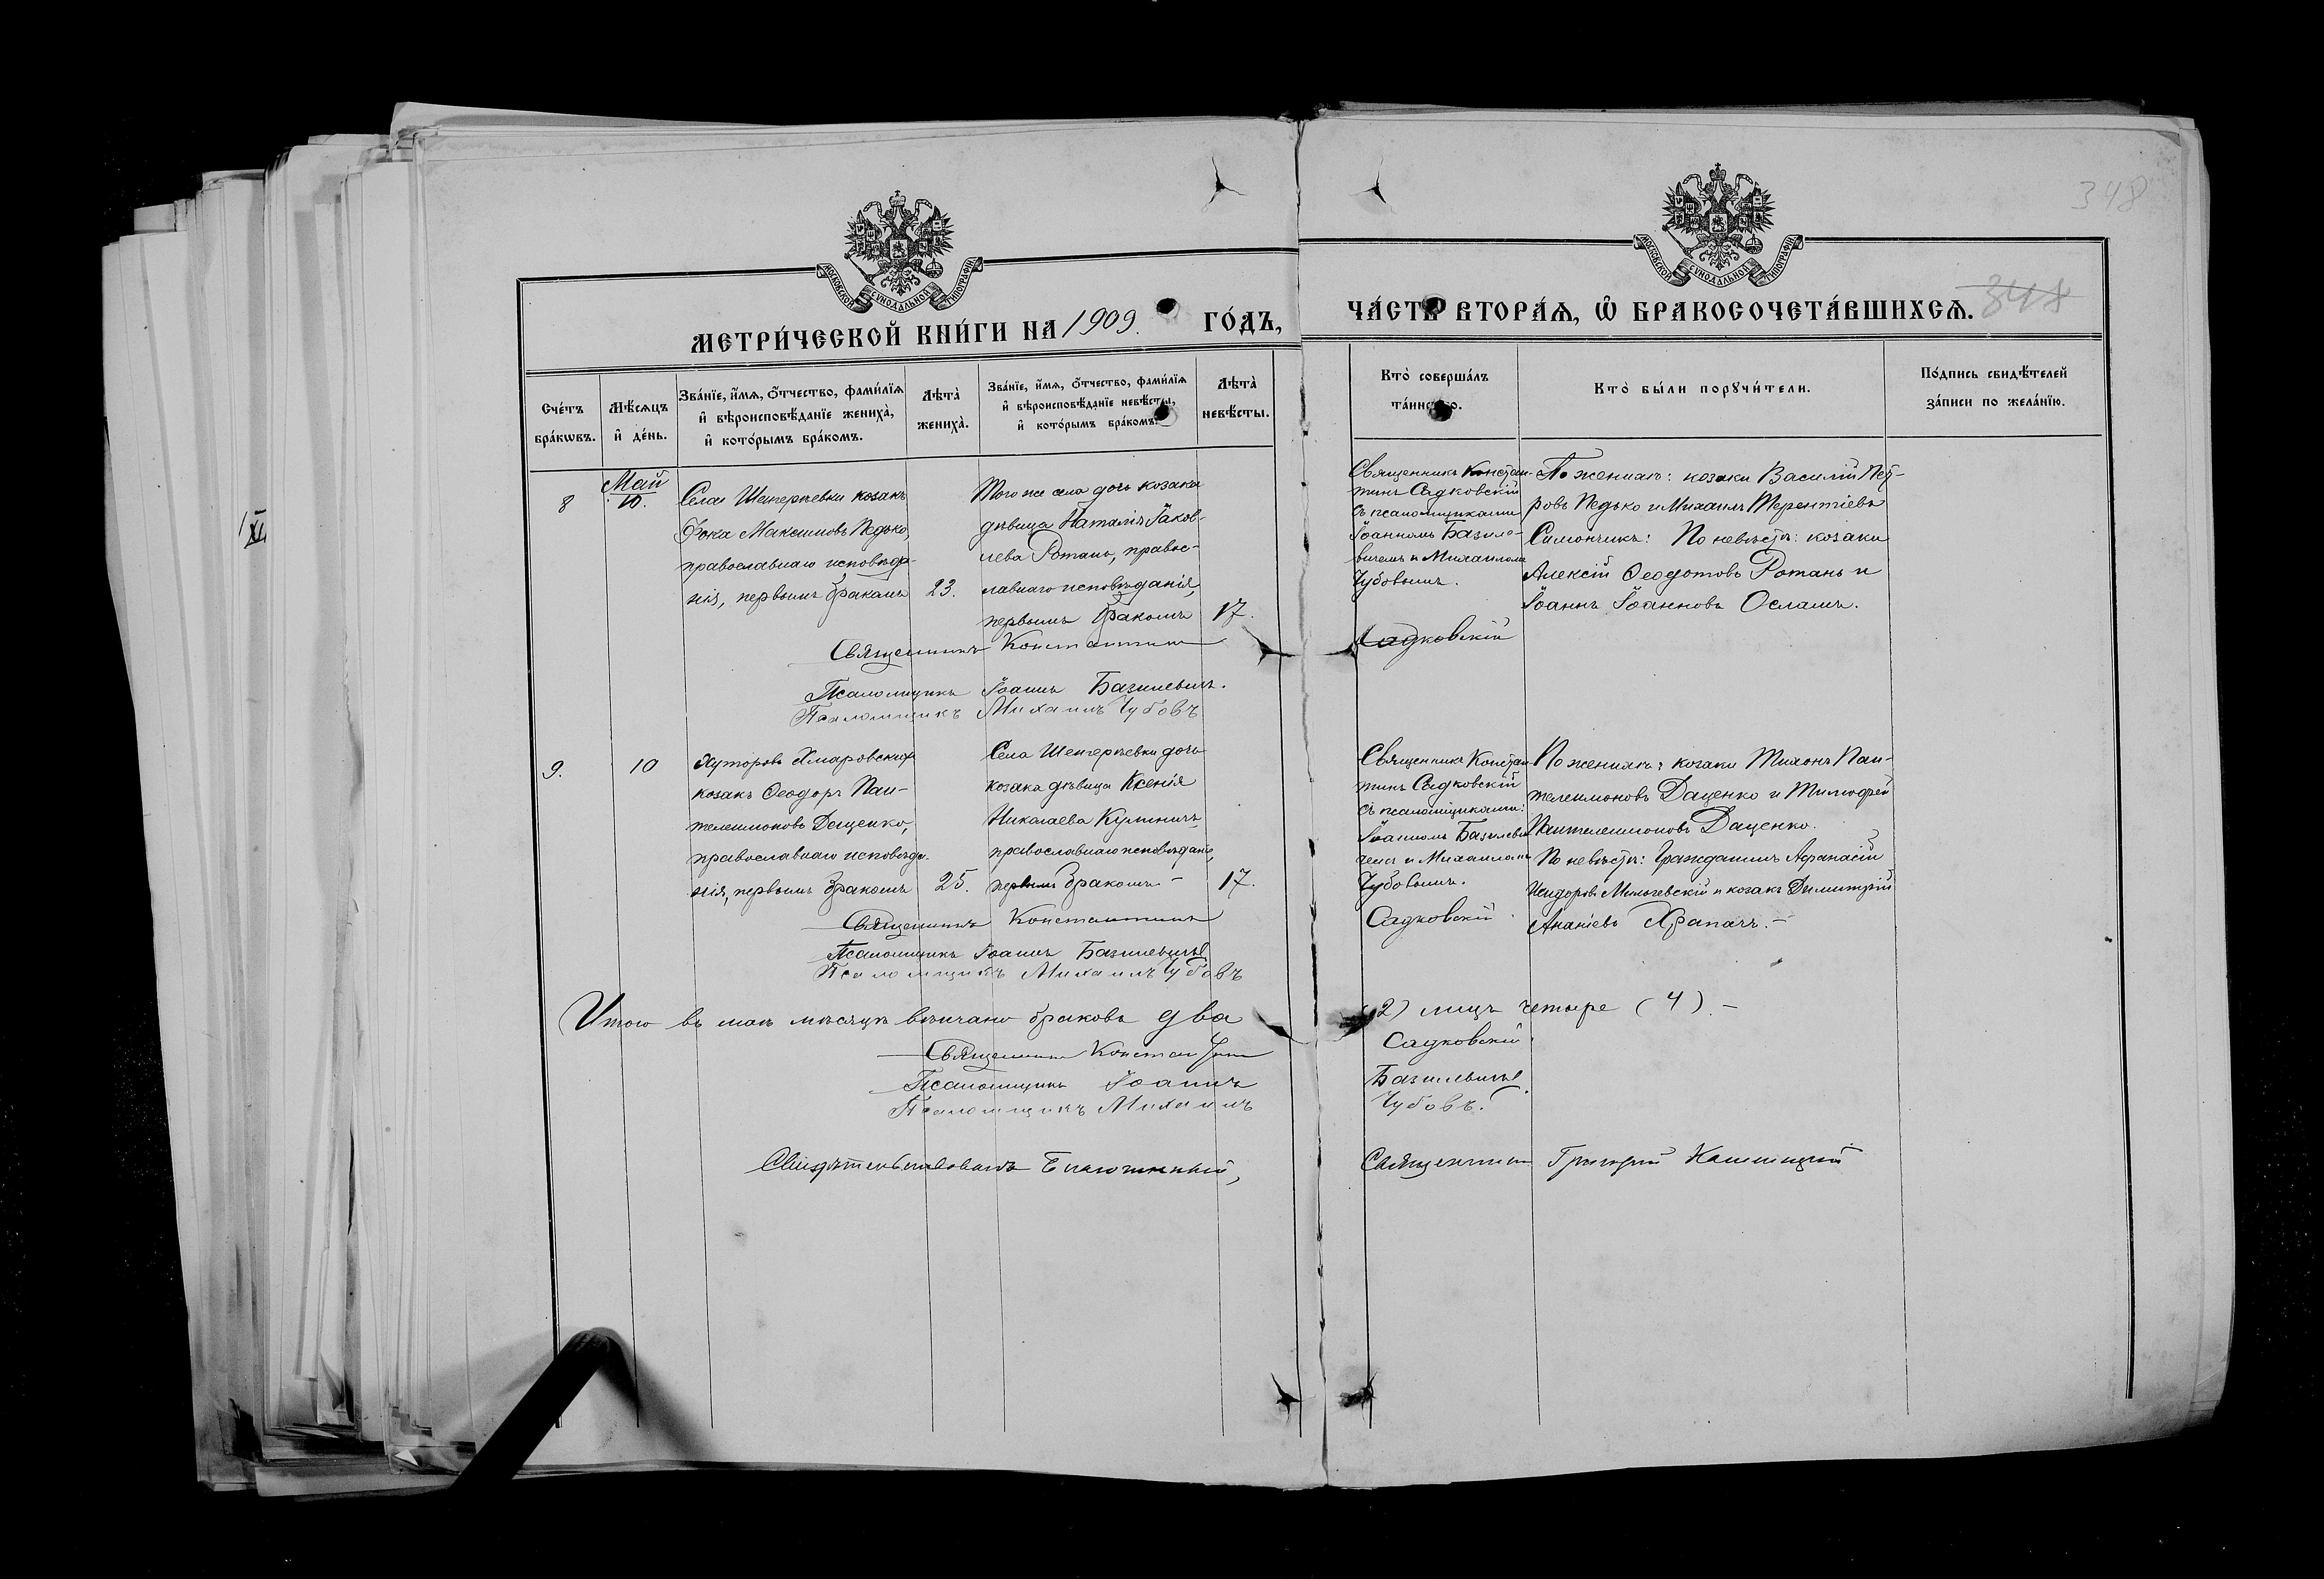 348
МОСКОВСКОЙ СѴНОДАЛЬНОЙ ТИПОГРАФІИ.
МОСКОВСКОЙ СѴНОДАЛЬНОЙ ТИПОГРАФІИ.
МЕТРИ́ЧЕСКОЙ КНИ́ГИ НА 1909. ГО́ДЪ,
ЧА́СТЬ ВТОРА́Я, Ѡ БРАКОСОЧЕТА́ВШИХСѦ.
348
Сче́тъ бра́кωвъ.
Мѣ́сяцъ и҆ де́нь.
Зва́нїе, и҆́мѧ, ѻ҆́тчество, фами́лїѧ
и҆ вѣроисповѣ́данїе жениха̀,
и҆ кото́рымъ бра́комъ.
Лѣта̀ жениха̀.
Зва́нїе, и҆́мѧ, ѻ҆́тчество, фами́лїѧ
и҆ вѣроисповѣ́данїе невѣ́сты,
и҆ кото́рымъ бра́комъ.
Лѣта̀ невѣ́сты.
Кто̀ соверша́лъ та́инство.
Кто̀ бы́ли порꙋчи́тели.
По́дпись свидѣ́телей
за́писи по жела́нїю.
8
Май
10.
Села Шеперѣевки козакъ
Фока Максимовъ Педько,
православнаго исповѣда-
нія, первымъ бракомъ
23.
Того же села дочь козака
дѣвица Наталія Іаков-
лева Ротань, правос-
лавнаго исповѣданія,
первымъ бракомъ
17.
Священникъ Констан-
тинъ Садковскій
съ псаломщиками
Іоанномъ Базиле-
вичемъ и Михаиломъ
Чубовымъ.
По женихѣ: козаки Василій Пет-
ровъ Педько и Михаилъ Терентіевъ
Симончикъ: По невѣстѣ: козаки
Алексій Ѳеодотовъ Ротань и
Іоаннъ Іоанновъ Осламъ.
Священникъ Константинъ Садковскій
Псаломщикъ Іоаннъ Базилевичъ.
Псаломщикъ Михаилъ Чубовъ
9.
10
Хуторовъ Хмаровскихъ
козакъ Ѳеодоръ Пан-
телеимоновъ Даценко,
православнаго исповѣда-
нія, первымъ бракомъ
25.
Села Шеперѣевки дочь
козака дѣвица Ксенія
Николаева Куминичъ,
православнаго исповѣданія,
первымъ бракомъ –
17.
Священникъ Констан-
тинъ Садковскій
съ псаломщиками:
Іоанномъ Базилеви-
чемъ и Михаиломъ
Чубовымъ.
По женихѣ: козаки Тихонъ Пан-
телеимоновъ Даценко и Тимофей
Пантелеимоновъ Даценко.
По невѣстѣ: Гражданинъ Афанасій
Исидоровъ Мильчевскій и козакъ Димитрій
Ананіевъ Храпачъ. –
Священникъ Константинъ Садковскій
Псаломщикъ Іоаннъ Базилевичъ
Псаломщикъ Михаилъ Чубовъ
Итого въ маѣ мѣсяцѣ вѣнчано браковъ два (2) лицъ четыре (4). –
Священникъ Константинъ Садковскій.
Псаломщикъ Іоаннъ Базилевичъ.
Псаломщикъ Михаилъ Чубовъ.
Свидѣтельствовалъ Благочинный, Священникъ Григорій